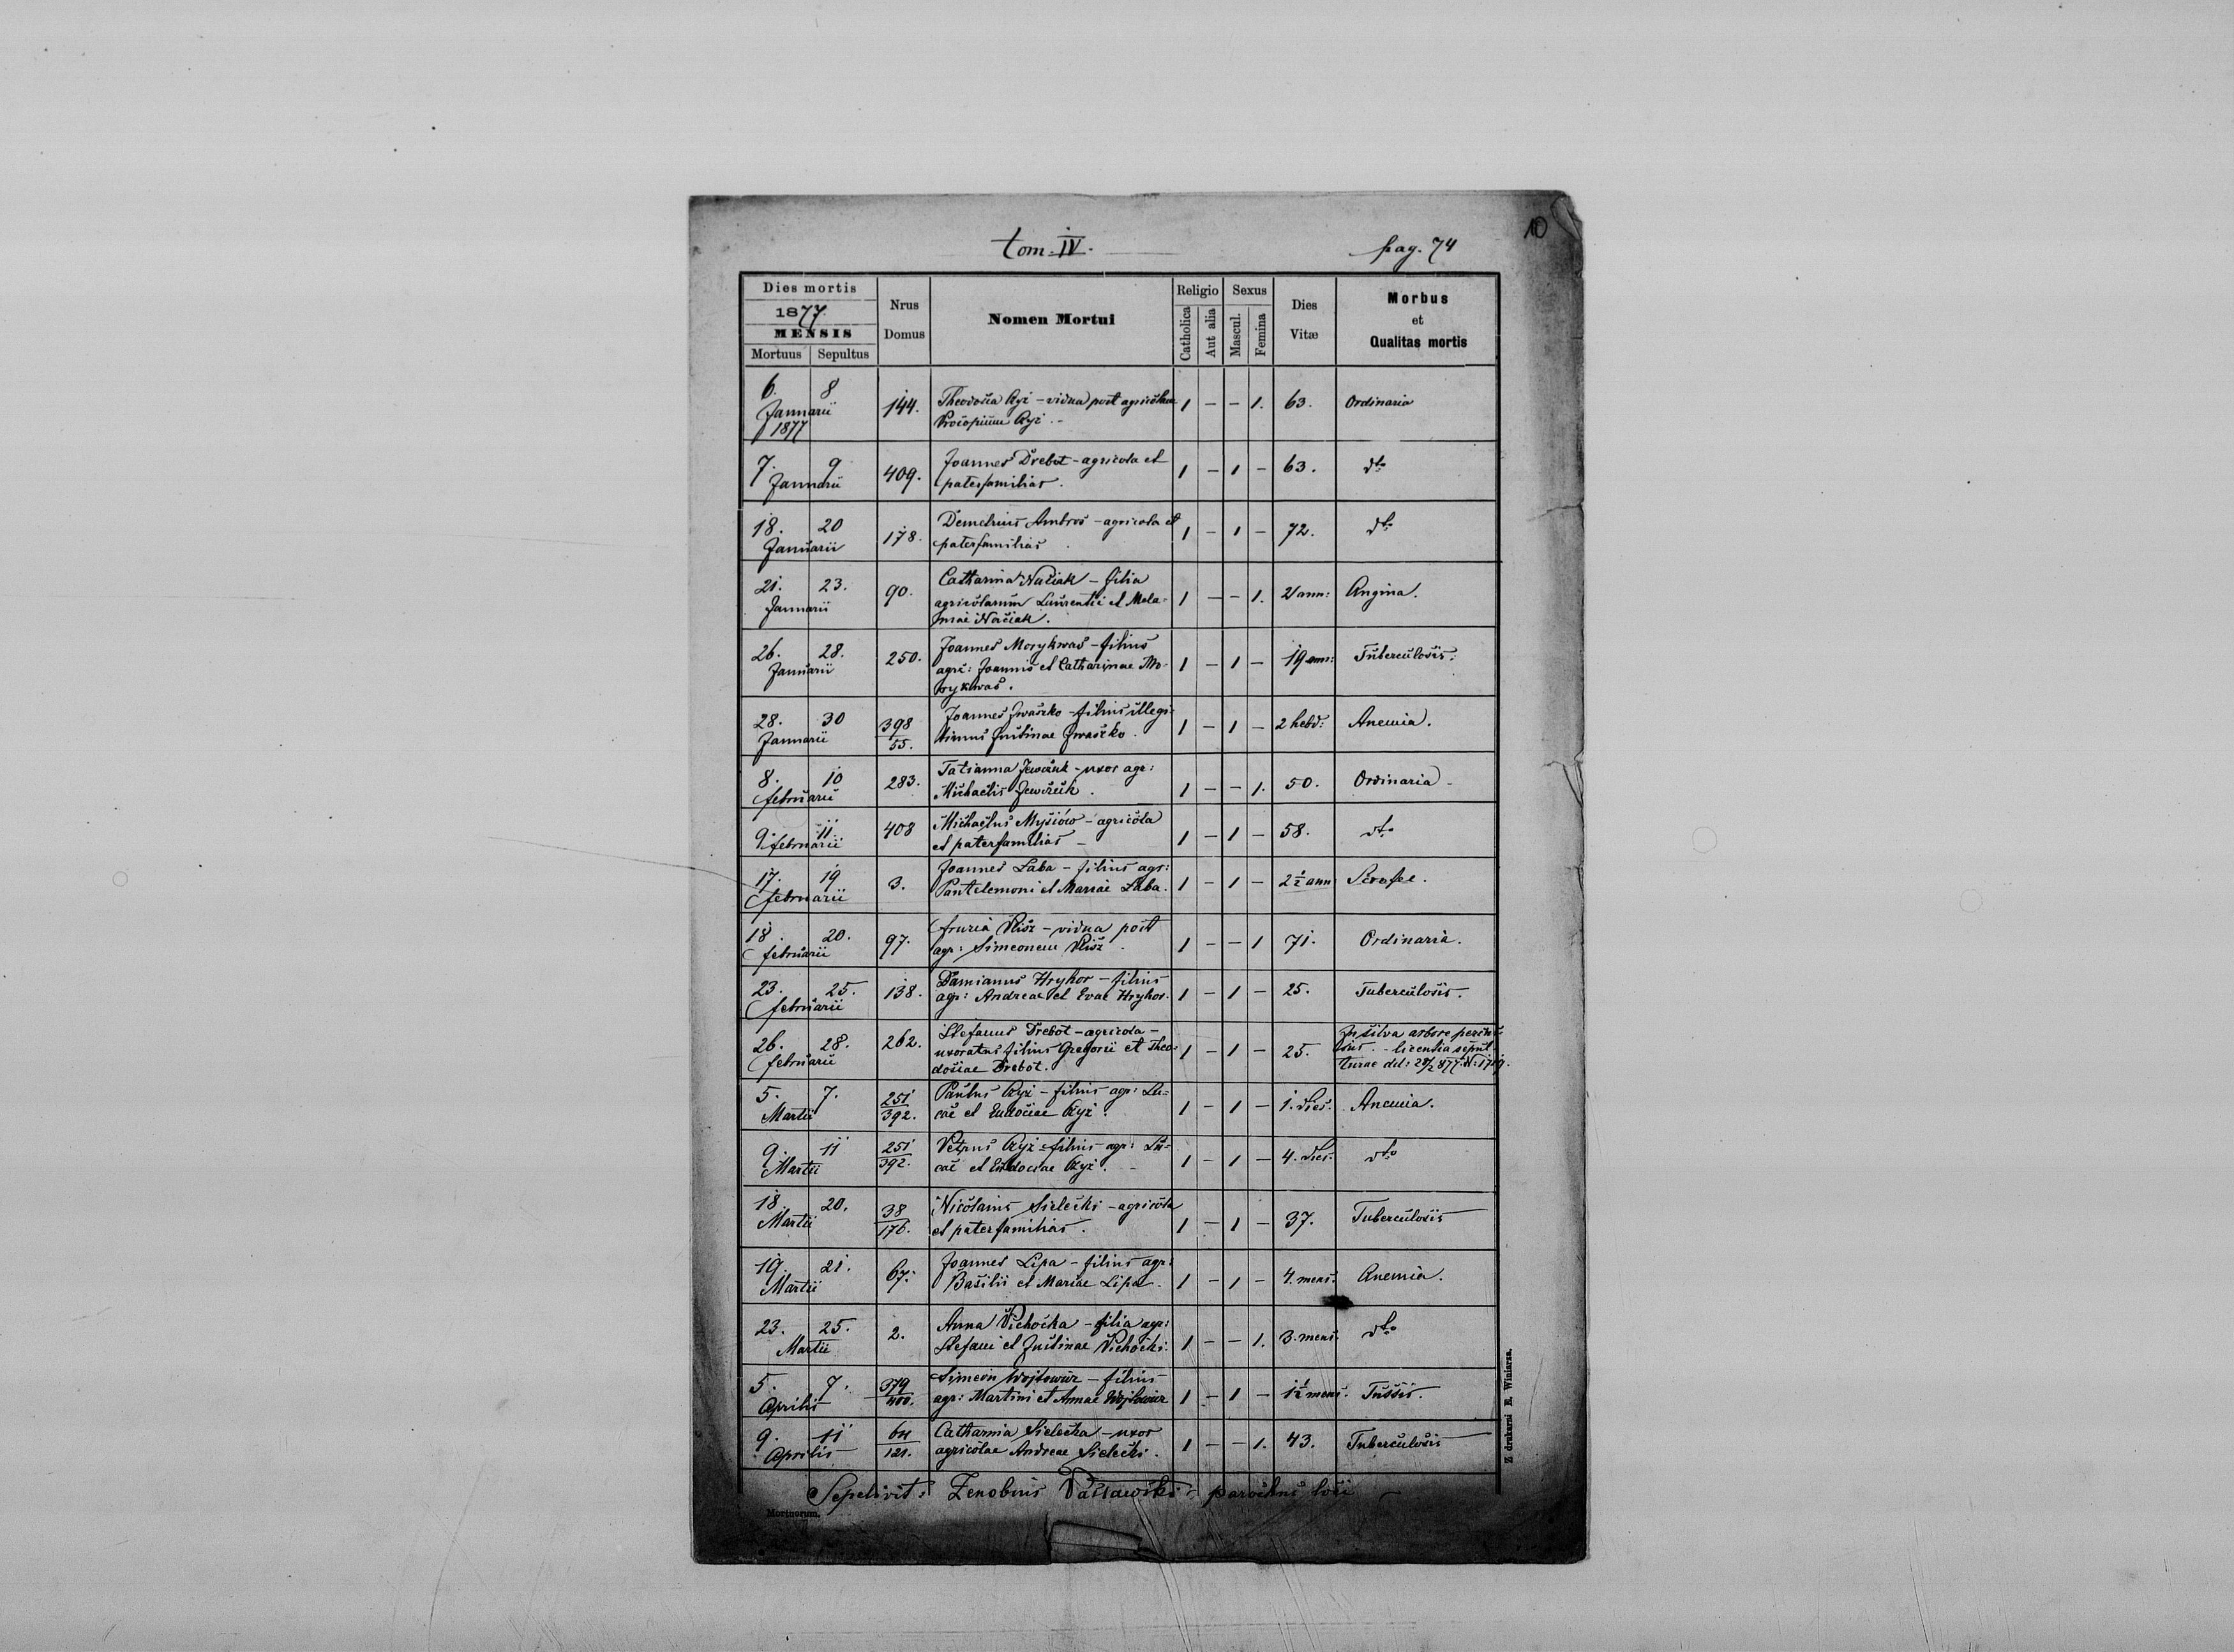 10
tom. IV.
pag. 74
Dies mortis
1877.
MENSIS
Mortuus Sepultus
Nrus
Domus
Nomen Mortui
Religio
Catholica
Aut alia
Sexus
Mascul.
Femina
Dies
Vitæ
Morbus
et
Qualitas mortis
6. 8
Januarii
1877
144.
Theodosia Ryż - vidua post agricolam
Procopium Ryż. -
1 - - 1. 63. Ordinaria
7. 9
Januarii
409.
Joannes Drebot - agricola et
paterfamilias.
1 - 1 - 63. dto
18. 20
Januarii
178.
Demetrius Ambros - agricola et
paterfamilias
1 - 1 - 72. dto
21. 23.
Januarii
90.
Catharina - filia
agricolarum Laurentii et Mela-
niae
1 - - 1. 2 ann: Angina.
26. 28.
Januarii
250.
Joannes Morykwas - filius
agri: Joannis et Catharinae Mo-
rykwas.
1 - 1 - 19 ann: Tuberculosis.
28. 30
Januarii
398
55.
Joannes Iwaszko - filius illegi-
timus Justinae Iwaszko.
1 - 1 - 2 hebd: Anemia.
8. 10
februarii
283.
Tatianna - uxor agr:
Michaelis
1 - - 1. 50. Ordinaria -
9. 11
februarii
408
Michaelus Mysiów - agricola
et paterfamilias -
1 - 1 - 58. dto
17. 19
februarii
3.
Joannes Łaba - filius agr:
Pantelemoni et Mariae Łaba.
1 - 1 - 2 1/2 ann
18 20.
februarii
97.
- vidua post
agr: Simeonem
1 - - 1 71. Ordinaria.
23. 25.
februarii
138.
Damianus Hryhor - filius
agr: Andreae et Evae Hryhor.
1 - 1 - 25. Tuberculosis.
26. 28.
februarii
262.
Stefanus Drebot - agricola -
uxoratus filius Gregorii et Theo-
dosiae Drebot.
1 - 1 - 25.
In silva arbore
- licentia sepul-
turae dd: 28/2 877.
5. 7.
Martii
251
392.
Paulus Ryż - filius agr: Lu-
cae et Eudociae Ryż.
1 - 1 - 1. dies. Anemia.
9. 11
Martii
251
392.
Petrus Ryż - filius agr: Lu-
cae et Eudociae Ryż. -
1 - 1 - 4. dies. dto
18. 20.
Martii
38
176.
Nicolaus Sielecki - agricola
et paterfamilias.
1 - 1 - 37. Tuberculosis
19. 21.
Martii
67.
Joannes Lipa - filius agr:
Basilii et Mariae Lipa.
1 - 1 - 4. mens. Anemia.
23. 25.
Martii
2.
Anna Cichocka - filia agr:
Stefani et Justinae Cichocki.
1 - - 1. 3. mens. dto
5. 7.
Aprilis
379
400.
Simeon Wojtowicz - filius
agr: Martini et Annae Wojtowicz
1 - 1 - 1 1/2 mens. Tussis.
9. 11
Aprilis
64
121.
Catharina Sielecka - uxor
agricolae Andreae Sielecki.
1 - - 1. 43. Tuberculosis
Sepelivit: Zenobius parochus loci
Mortuorum.
Z drukarni E. Winiarza.